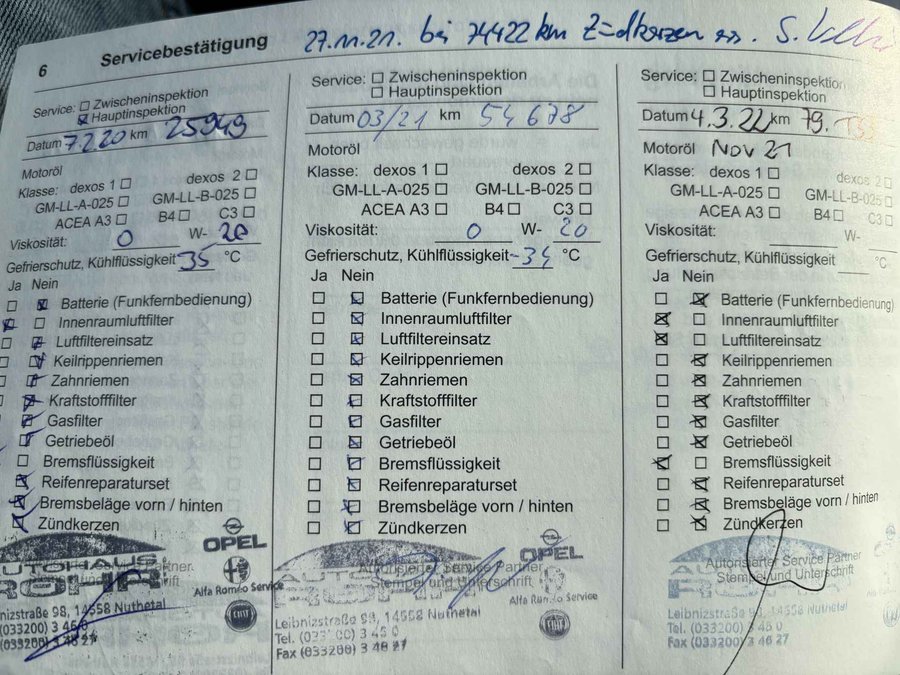 6
Servicebestätigung
27.11.21. bei 74422 km Zündkerzen
Service: Zwischeninspektion
Hauptinspektion
Datum 7.2.20 km 25949
Motoröl
Klasse: dexos 1 dexos 2
GM-LL-A-025 GM-LL-B-025
ACEA A3 B4 C3
Viskosität: 0 W- 20
Gefrierschutz, Kühlflüssigkeit -35 °C
Ja Nein
Batterie (Funkfernbedienung)
Innenraumluftfilter
Luftfiltereinsatz
Keilrippenriemen
Zahnriemen
Kraftstofffilter
Gasfilter
Getriebeöl
Bremsflüssigkeit
Reifenreparaturset
Bremsbeläge vorn / hinten
Zündkerzen
AUTOHAUS
RÖHR
OPEL
Alfa Romeo Service
FIAT
Partner
Unterschrift
Leibnizstraße 98, 14558 Nuthetal
(033200) 3 45 0
(033200) 3 46 27
Service: Zwischeninspektion
Hauptinspektion
Datum 03/21 km 54678
Motoröl
Klasse: dexos 1 dexos 2
GM-LL-A-025 GM-LL-B-025
ACEA A3 B4 C3
Viskosität: 0 W- 20
Gefrierschutz, Kühlflüssigkeit -34 °C
Ja Nein
Batterie (Funkfernbedienung)
Innenraumluftfilter
Luftfiltereinsatz
Keilrippenriemen
Zahnriemen
Kraftstofffilter
Gasfilter
Getriebeöl
Bremsflüssigkeit
Reifenreparaturset
Bremsbeläge vorn / hinten
Zündkerzen
OPEL
Autorisierter Service Partner
Stempel und Unterschrift
Alfa Romeo Service
FIAT
Leibnizstraße 98, 14558 Nuthetal
Tel. (033200) 3 45 0
Fax (033200) 3 46 27
Service: Zwischeninspektion
Hauptinspektion
Datum 4.3.22 km 79.
Motoröl Nov 21
Klasse: dexos 1 dexos 2
GM-LL-A-025 GM-LL-B-025
ACEA A3 B4 C3
Viskosität: W-
Gefrierschutz, Kühlflüssigkeit °C
Ja Nein
Batterie (Funkfernbedienung)
Innenraumluftfilter
Luftfiltereinsatz
Keilrippenriemen
Zahnriemen
Kraftstofffilter
Gasfilter
Getriebeöl
Bremsflüssigkeit
Reifenreparaturset
Bremsbeläge vorn / hinten
Zündkerzen
Autorisierter Service Partner
Stempel und Unterschrift
Leibnizstraße 98, 14558 Nuthetal
Tel. (033200) 3 45 0
Fax (033200) 3 46 27